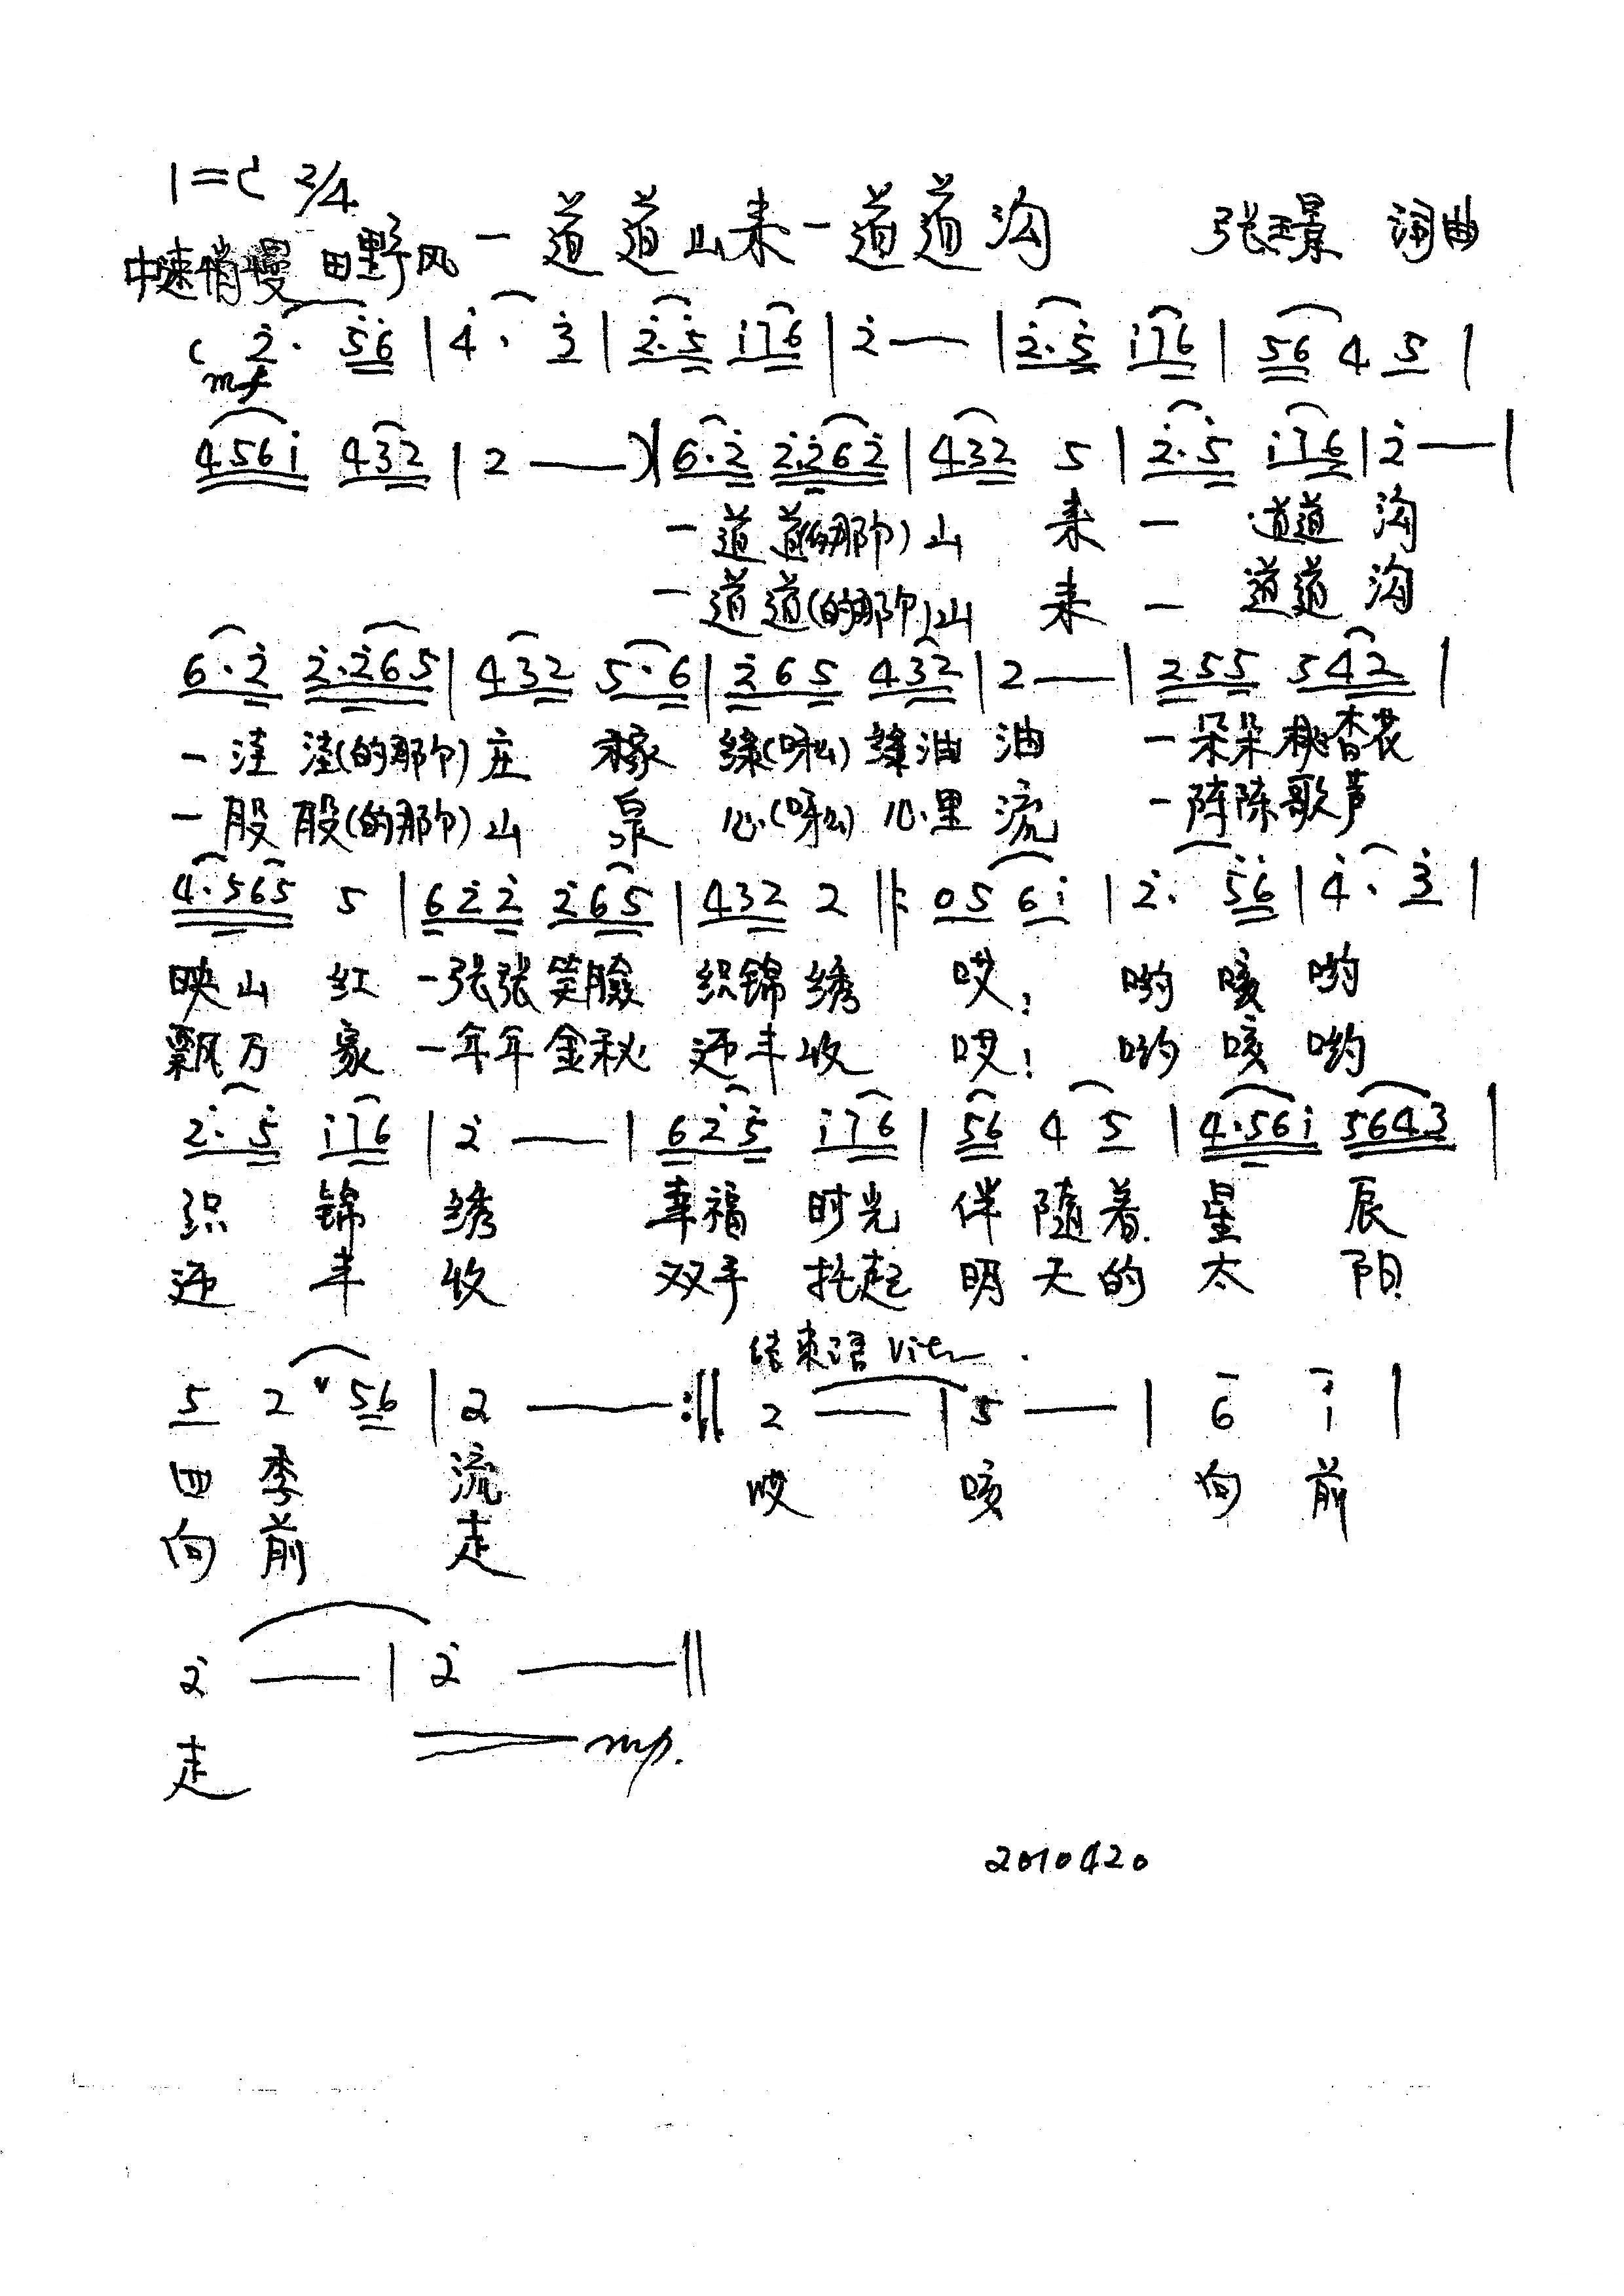 1=C 2/4
中速稍慢 田野风 一道道山来一道道沟 张璟 词曲
( 2̇· 5̇6̇ | 4̇· 3̇ | 2̇·5̇ i76 | 2̇ — | 2̇·5̇ i76 | 56 4 5 |
mf
456i 432 | 2 — ) | 6·2̇ 2̇·2̇62̇ | 432 5 | 2̇·5̇ i76 | 2̇ — |
一道道(的那个)山 来 一 道道 沟
一道道(的那个)山 来 一 道道 沟
6·2̇ 2̇·2̇65 | 432 5·6 | 2̇65 432 | 2 — | 255 542 |
一洼洼(的那个)庄 稼 绿(呀么)绿油油 一朵朵桃杏花
一股股(的那个)山 泉 心(呀么)心里流 一阵阵歌声
4·565 5 | 62̇2̇ 2̇65 | 432 2 ‖: 05 6i | 2̇· 5̇6̇ | 4̇· 3̇ |
映山 红 一张张笑脸 织锦绣 哎! 哟 咳 哟
飘万家 一年年金秋 迎丰收 哎! 哟 咳 哟
2̇·5̇ i76 | 2̇ — | 62̇5̇ i76 | 56 4 5 | 4·56i 5643 |
织 锦 绣 幸福 时光 伴随着 星 辰
迎 丰 收 双手 托起 明天的 太 阳
结束语 Vit
5 2 ᵛ56 | 2 — :‖ 2 — | 5 — | 6 i |
四季 流 哎 咳 向 前
向前 走
2̇ — | 2̇ — ‖
走 mp.
20100420